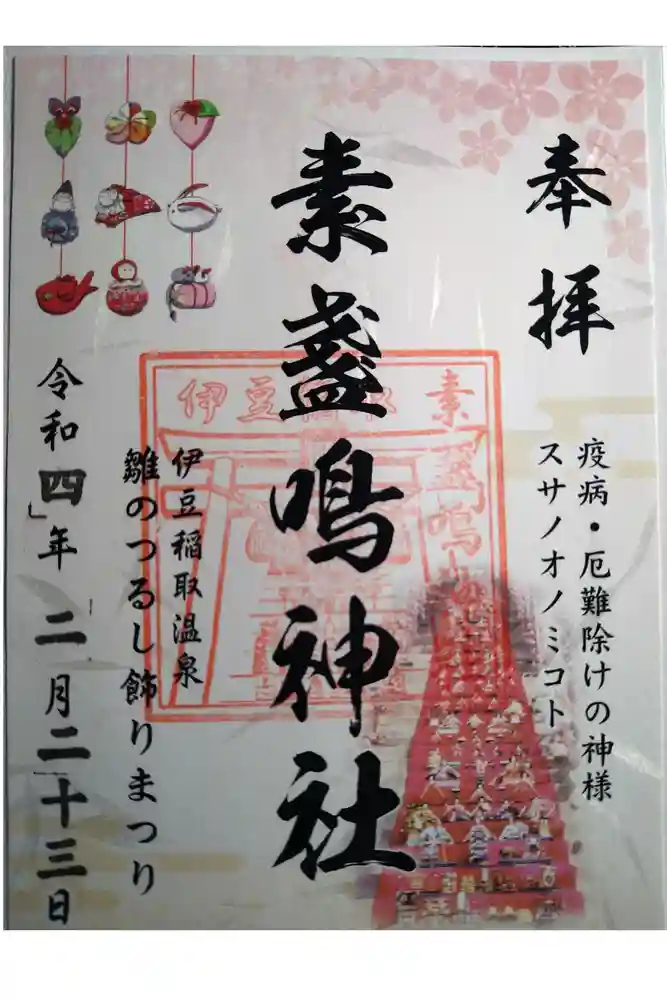 奉拝
疫病・厄難除けの神様
スサノオノミコト
素盞鳴神社
伊豆稲取
素盞鳴神社
伊豆稲取温泉
雛のつるし飾りまつり
令和四年 二月二十三日